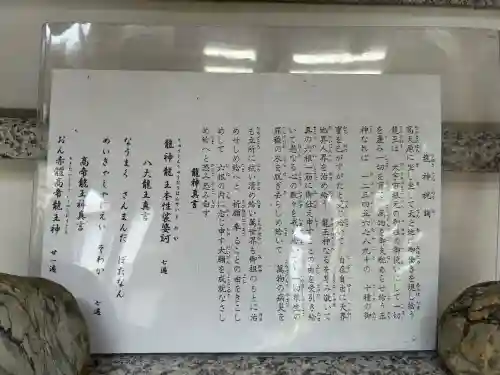 龍神祝詞
高天原に坐し坐して天と地に御働きを現し給う
龍王は 大宇宙根元の御祖の御使いにして一切
を産み一切を育て 萬物を御支配あらせ給う王
神なれば 一二三四五六七八九十の 十種の御
寶を己がすがたと変じ給いて 自在自由に天界
地界人界を治め給う 龍王神なるを尊み敬いて
真の六根一筋に御仕え申すことの由を受引き給
いて 愚なる心の数々を戒め給いて 一切衆生の
罪穢の衣を脱ぎ去らしめ給いて 萬物の病災を
も立所に祓い清め給い 萬世界も御祖のもとに治
めせしめ給へと 祈願奉ることの由をきこし
めして 六根の内に念じ申す大願を成就なさし
め給へと恐み恐み白す
龍神真言
龍神龍王本性裟婆訶 七遍
八大龍王真言
なうまく さんまんだ ぼだなん
めいきゃしゃにえい そわか 七遍
高帝龍王神真言
おん赤體高帝龍王神 廿一遍